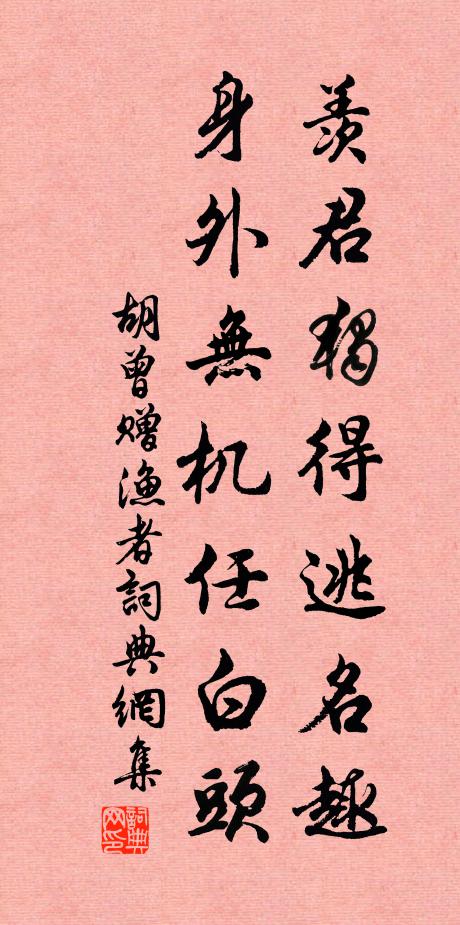 羨君獨得逃名趣
身外無机任白頭
胡曾贈漁者詞典網集
詞典网印